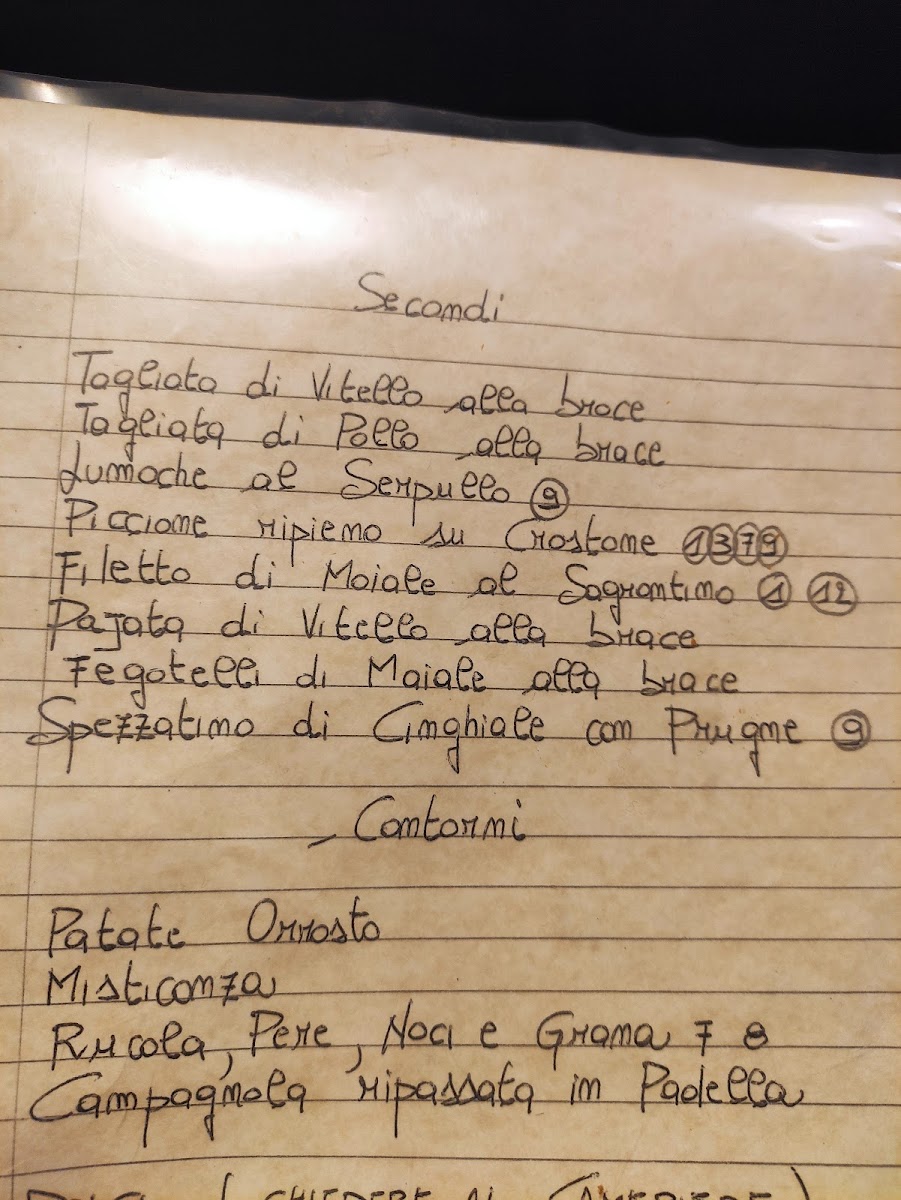 Secondi
Tagliata di Vitello alla brace
Tagliata di Pollo alla brace
Lumache al Serpullo 9
Piccione ripieno su Crostone 1 3 7 9
Filetto di Maiale al Sagrantino 1 12
Pajata di Vitello alla brace
Fegatelli di Maiale alla brace
Spezzatino di Cinghiale con Prugne 9
Contorni
Patate Arrosto
Misticanza
Rucola, Pere, Noci e Grana 7 8
Campagnola ripassata in Padella
( CHIEDERE AL CAMERIERE )